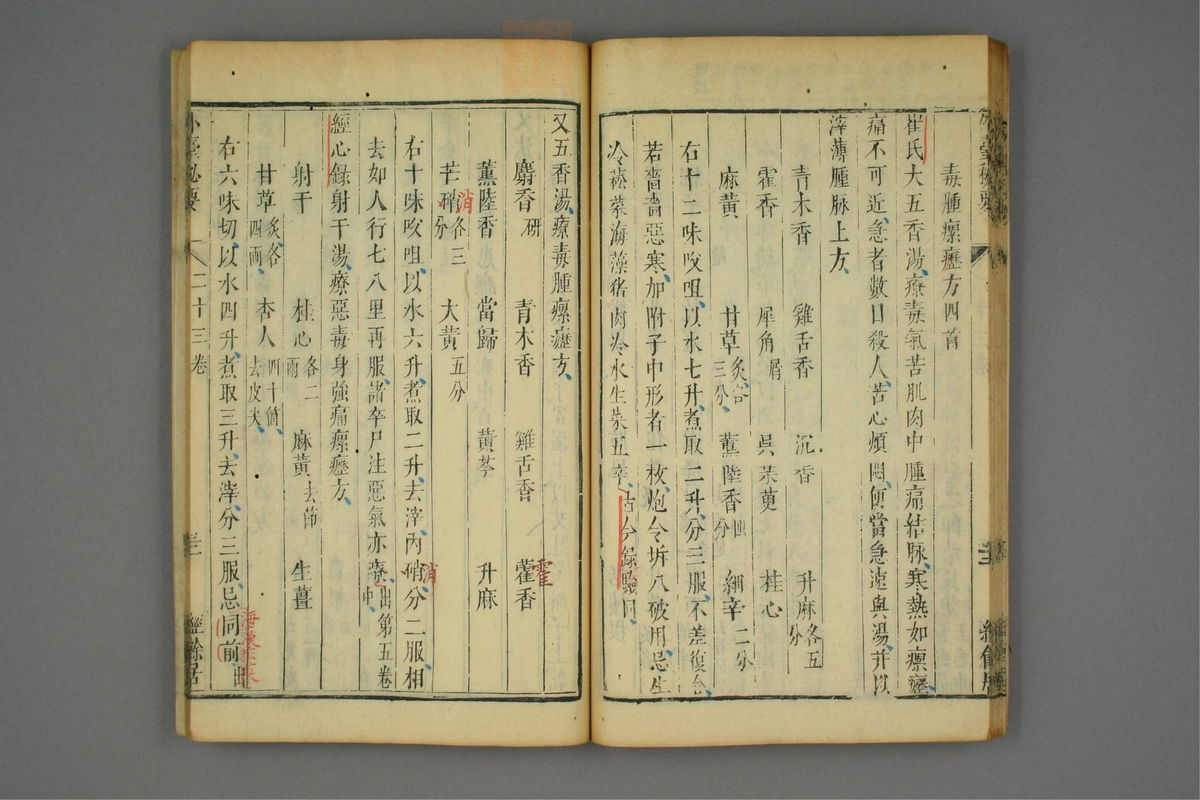 毒腫瘰癧方四首
崔氏大五香湯療毒氣苦肌肉中腫痛結脉寒熱如瘰癧
痛不可近急者數日殺人苦心煩悶便當急速與湯并以
滓薄腫脉上方
青木香 雞舌香 沉香 升麻各五分
霍香 犀角屑 吳茱萸 桂心
麻黃 甘草炙各三分 薰陸香四分 細辛二分
右十二味㕮咀以水七升煮取二升分三服不差復合
若嗇嗇惡寒加附子中形者一枚炮令坼八破用忌生
冷菘菜海藻猪肉冷水生菜五辛古今錄驗同
又五香湯療毒腫瘰癧方
麝香研 青木香 雞舌香 藿香
霍
薰陸香 當歸 黃芩 升麻
芒硝各三分 大黃五分
消
右十味㕮咀以水六升煮取二升去滓內硝分二服相
消
去如人行七八里再服諸卒尸注惡氣亦療出第五卷中
經心錄射干湯療惡毒身強痛瘰癧方
射干 桂心各二兩 麻黃去節 生薑
甘草炙各四兩 杏人四十箇去皮尖
右六味切以水四升煮取三升去滓分三服忌同前出
海藻菘菜
外臺秘要 二十三卷 三 經餘居